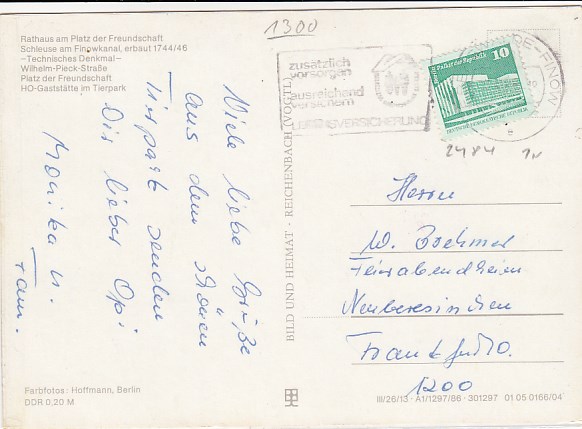 1300
Rathaus am Platz der Freundschaft
Schleuse am Finowkanal, erbaut 1744/46
–Technisches Denkmal–
Wilhelm-Pieck-Straße
Platz der Freundschaft
HO-Gaststätte im Tierpark
Viele liebe Grüße
aus dem schönen
Tierpark senden
Dir lieber Opi
Monika u.
Fam.
Farbfotos: Hoffmann, Berlin
DDR 0,20 M
BILD UND HEIMAT · REICHENBACH (VOGTL
zusätzlich
vorsorgen
ausreichend
versichern
VERSICHERUNG
DE-FINOW
10
Palast der Republik
DEUTSCHE DEMOKRATISCHE REPUBLIK
2484
Herrn
W. Bochmel
Feierabendheim
Neuberesinchen
Frankfurt O.
1200
III/26/13 · A1/1297/86 · 301297 01 05 0166/04